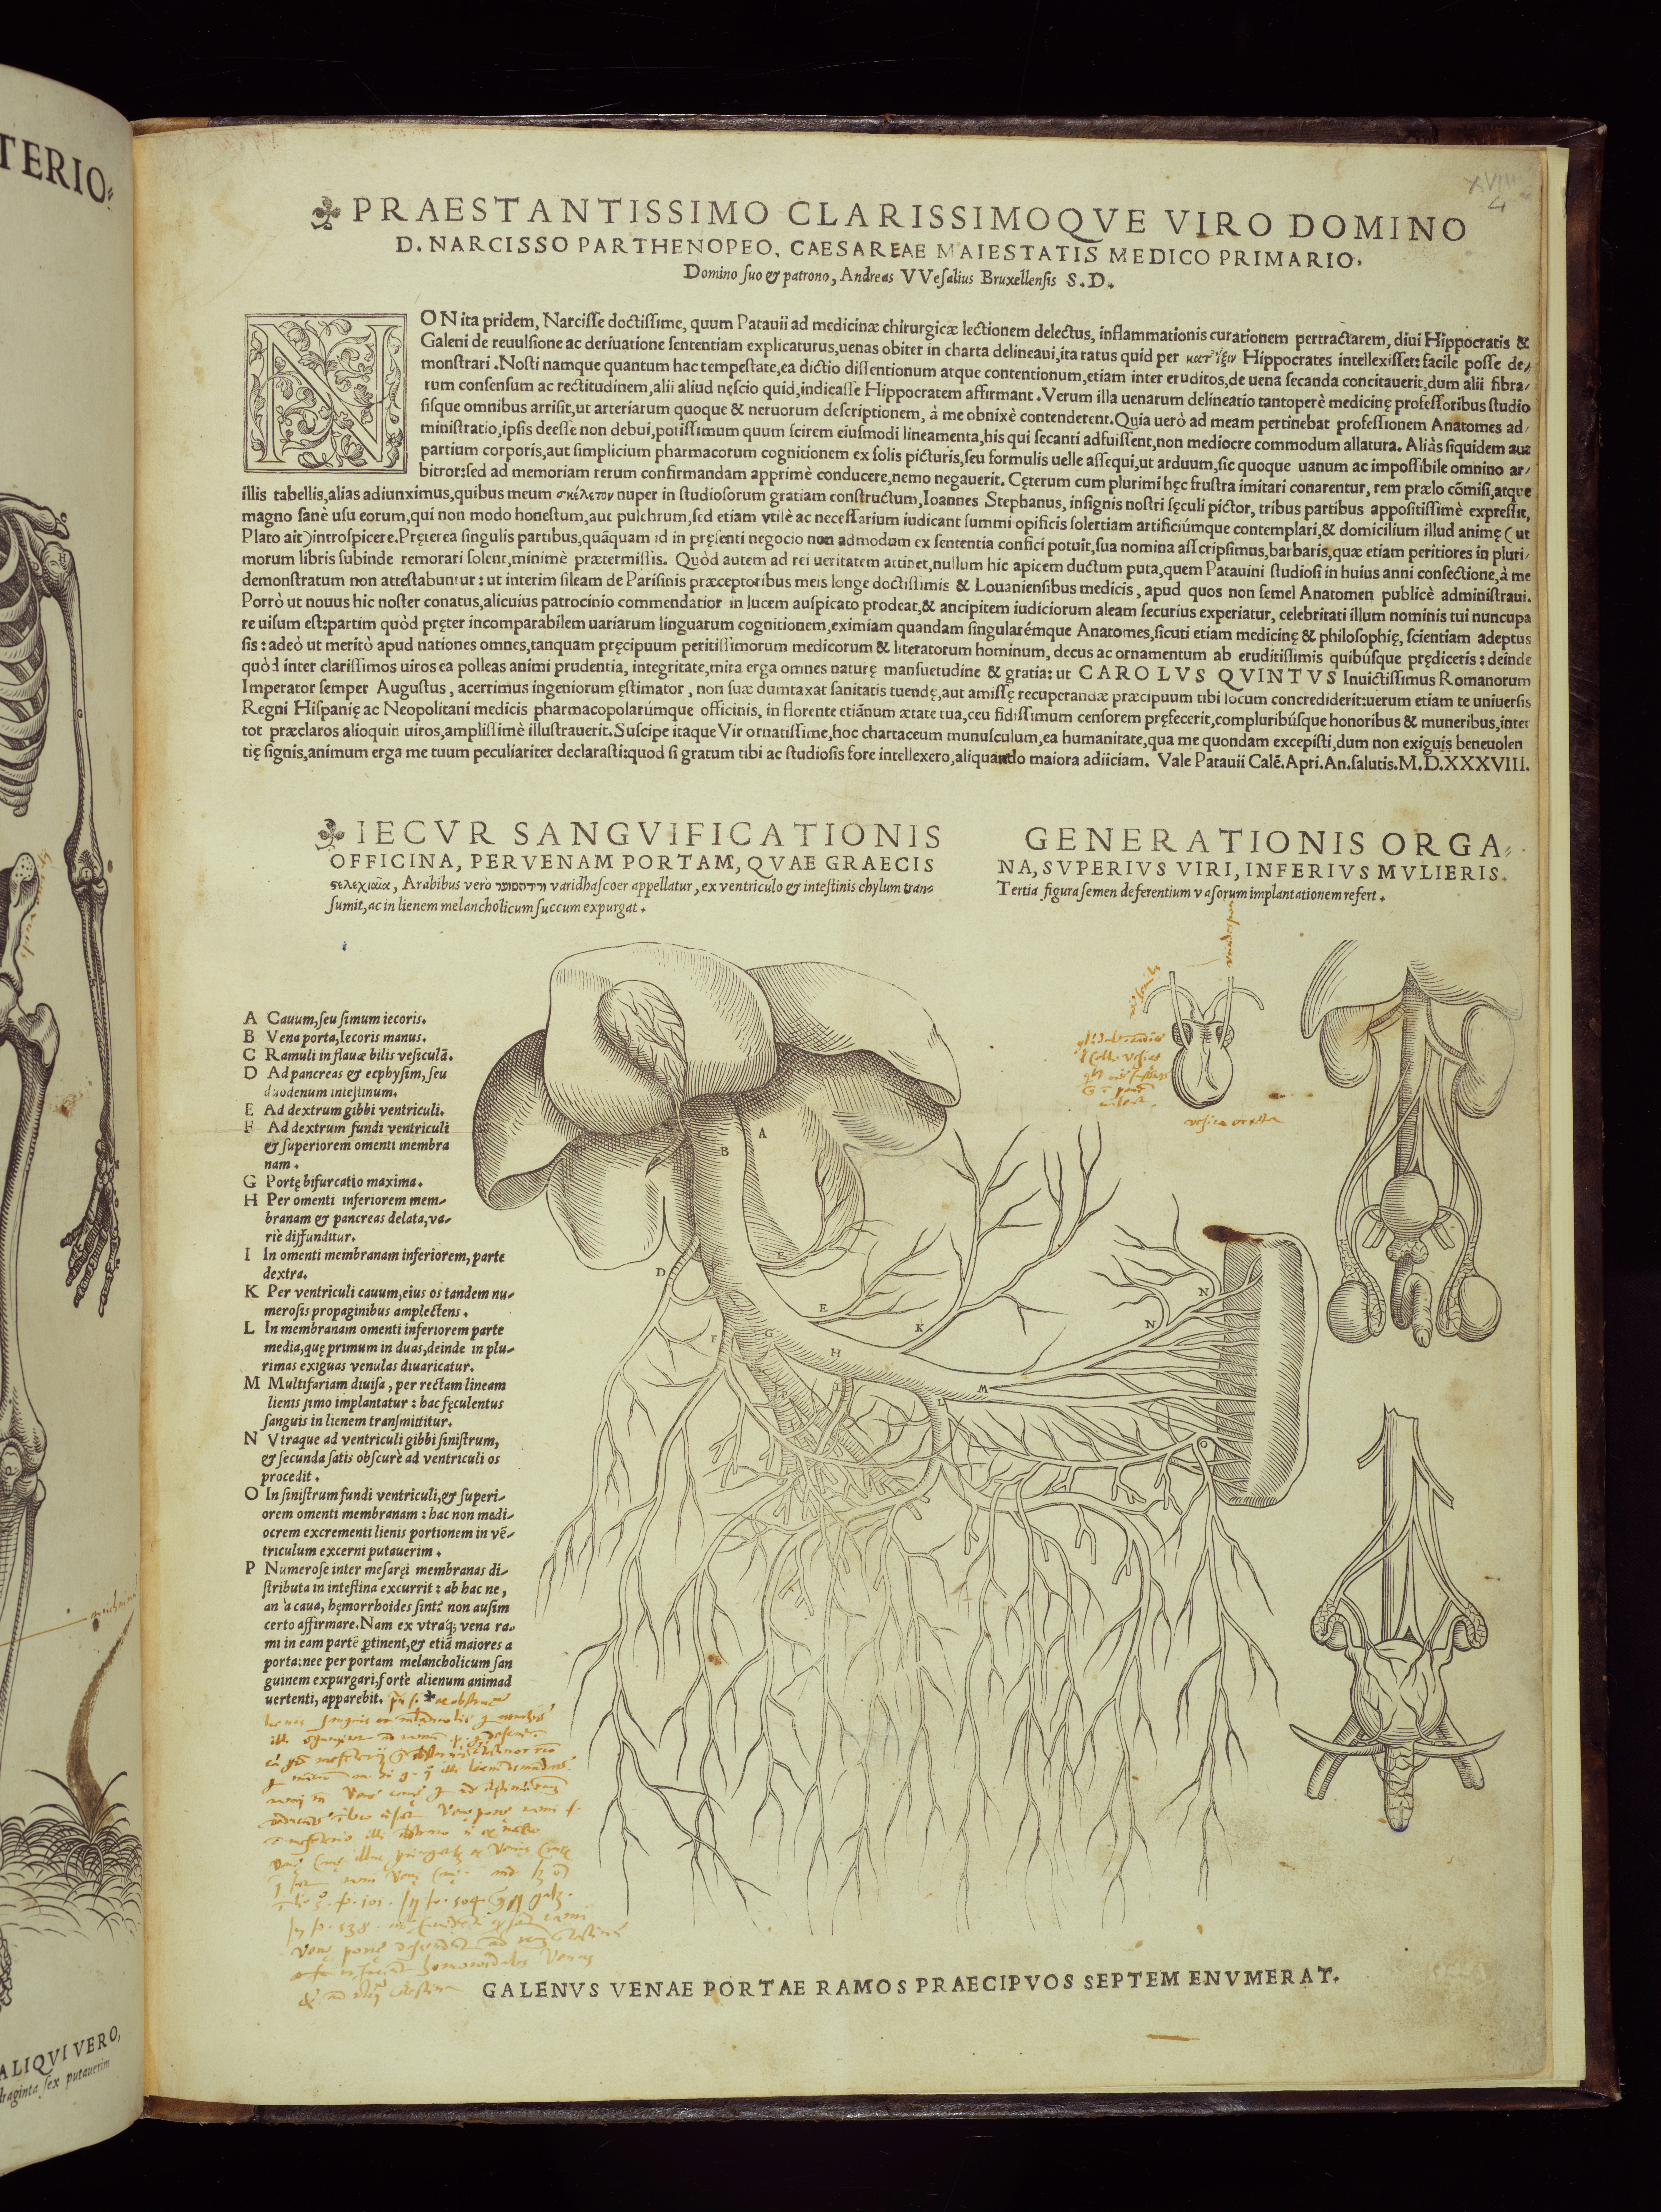 TERIO⸗
XVIII
4
PRAESTANTISSIMO CLARISSIMOQVE VIRO DOMINO
D. NARCISSO PARTHENOPEO, CAESAREAE MAIESTATIS MEDICO PRIMARIO,
Domino ſuo & patrono, Andreas VVeſalius Bruxellenſis S.D.
NON ita pridem, Narciſſe doctiſſime, quum Patauii ad medicinæ chirurgicæ lectionem delectus, inflammationis curationem pertractarem, diui Hippocratis &
Galeni de reuulſione ac deriuatione ſententiam explicaturus, uenas obiter in charta delineaui, ita ratus quid per κατ᾽ἴξιν Hippocrates intellexiſſet: facile poſſe de⸗
monſtrari. Noſti namque quantum hac tempeſtate, ea dictio diſſentionum atque contentionum, etiam inter eruditos, de uena ſecanda concitauerit, dum alii fibra⸗
rum conſenſum ac rectitudinem, alii aliud neſcio quid, indicaſſe Hippocratem affirmant. Verum illa uenarum delineatio tantoperè medicinę profeſſoribus ſtudio
ſiſque omnibus arriſit, ut arteriarum quoque & neruorum deſcriptionem, à me obnixè contenderent. Quia uerò ad meam pertinebat profeſſionem Anatomes ad⸗
miniſtratio, ipſis deeſſe non debui, potiſſimum quum ſcirem eiuſmodi lineamenta, his qui ſecanti adfuiſſent, non mediocre commodum allatura. Aliàs ſiquidem aut
partium corporis, aut ſimplicium pharmacorum cognitionem ex ſolis picturis, ſeu formulis uelle aſſequi, ut arduum, ſic quoque uanum ac impoſſibile omnino ar⸗
bitror: ſed ad memoriam rerum confirmandam apprimè conducere, nemo negauerit. Cęterum cum plurimi hęc fruſtra imitari conarentur, rem prælo cōmiſi, atque
illis tabellis, alias adiunximus, quibus meum σκέλετον nuper in ſtudioſorum gratiam conſtructum, Ioannes Stephanus, inſignis noſtri ſęculi pictor, tribus partibus appoſitiſſimè expreſſit,
magno ſanè uſu eorum, qui non modo honeſtum, aut pulchrum, ſed etiam vtilè ac neceſſarium iudicant ſummi opificis ſolertiam artificiúmque contemplari, & domicilium illud animę (ut
Plato ait) introſpicere. Pręterea ſingulis partibus, quāquam id in pręſenti negocio non admodum ex ſententia confici potuit, ſua nomina aſſcripſimus, barbaris, quæ etiam peritiores in pluri⸗
morum libris ſubinde remorari ſolent, minimè prætermiſſis. Quòd autem ad rei ueritatem attinet, nullum hic apicem ductum puta, quem Patauini ſtudioſi in huius anni conſectione, à me
demonſtratum non atteſtabuntur: ut interim ſileam de Pariſinis præceptoribus meis longe doctiſſimis & Louanienſibus medicis, apud quos non ſemel Anatomen publicè adminiſtraui.
Porrò ut nouus hic noſter conatus, alicuius patrocinio commendatior in lucem auſpicato prodeat, & ancipitem iudiciorum aleam ſecurius experiatur, celebritati illum nominis tui nuncupa
re uiſum eſt: partim quòd pręter incomparabilem uariarum linguarum cognitionem, eximiam quandam ſingularémque Anatomes, ſicuti etiam medicinę & philoſophię, ſcientiam adeptus
ſis: adeò ut meritò apud nationes omnes, tanquam pręcipuum peritiſſimorum medicorum & literatorum hominum, decus ac ornamentum ab eruditiſſimis quibúſque prędiceris: deinde
quòd inter clariſſimos uiros ea polleas animi prudentia, integritate, mira erga omnes naturę manſuetudine & gratia: ut CAROLVS QVINTVS Inuictiſſimus Romanorum
Imperator ſemper Auguſtus, acerrimus ingeniorum ęſtimator, non ſuæ duntaxat ſanitatis tuendę, aut amiſſę recuperandæ præcipuum tibi locum concrediderit: uerum etiam te uniuerſis
Regni Hiſpanię ac Neopolitani medicis pharmacopolarúmque officinis, in florente etiānum ætate tua, ceu fidiſſimum cenſorem pręfecerit, compluribúſque honoribus & muneribus, inter
tot præclaros alioquin uiros, ampliſſimè illuſtrauerit. Suſcipe itaque Vir ornatiſſime, hoc chartaceum munuſculum, ea humanitate, qua me quondam excepiſti, dum non exiguis beneuolen
tię ſignis, animum erga me tuum peculiariter declaraſti: quod ſi gratum tibi ac ſtudioſis fore intellexero, aliquando maiora adiiciam. Vale Patauii Calē. Apri. An. ſalutis. M.D.XXXVIII.
IECVR SANGVIFICATIONIS
OFFICINA, PER VENAM PORTAM, QVAE GRAECIS
ϛελεχιαῖα, Arabibus vero varidhaſcoer appellatur, ex ventriculo & inteſtinis chylum tran⸗
ſumit, ac in lienem melancholicum ſuccum expurgat.
GENERATIONIS ORGA⸗
NA, SVPERIVS VIRI, INFERIVS MVLIERIS.
Tertia figura ſemen deferentium vaſorum implantationem refert.
A Cauum, ſeu ſimum iecoris.
B Vena porta, Iecoris manus.
C Ramuli in flauæ bilis veſiculā.
D Ad pancreas & ecphyſim, ſeu
duodenum inteſtinum.
E Ad dextrum gibbi ventriculi.
F Ad dextrum fundi ventriculi
& ſuperiorem omenti membra
nam.
G Portę bifurcatio maxima.
H Per omenti inferiorem mem⸗
branam & pancreas delata, va⸗
riè diffunditur.
I In omenti membranam inferiorem, parte
dextra.
K Per ventriculi cauum, eius os tandem nu⸗
meroſis propaginibus amplectens.
L In membranam omenti inferiorem parte
media, quę primum in duas, deinde in plu⸗
rimas exiguas venulas diuaricatur.
M Multifariam diuiſa, per rectam lineam
lienis ſimo implantatur: hac fęculentus
ſanguis in lienem tranſmittitur.
N Vtraque ad ventriculi gibbi ſiniſtrum,
& ſecunda ſatis obſcurè ad ventriculi os
procedit.
O In ſiniſtrum fundi ventriculi, & ſuperi⸗
orem omenti membranam: hac non medi⸗
ocrem excrementi lienis portionem in vē⸗
triculum excerni putauerim.
P Numeroſe inter meſaręi membranas di⸗
ſtributa in inteſtina excurrit: ab hac ne,
an à caua, hęmorrhoides ſint: non auſim
certo affirmare. Nam ex vtraq; vena ra⸗
mi in eam partē ꝑtinent, & etiā maiores a
porta: nec per portam melancholicum ſan
guinem expurgari, fortè alienum animad
uertenti, apparebit.
A
B
D
E
E
F
G
H
I
K
L
M
N
N
GALENVS VENAE PORTAE RAMOS PRAECIPVOS SEPTEM ENVMERAT.
ALIQVI VERO,
draginta ſex putauerim